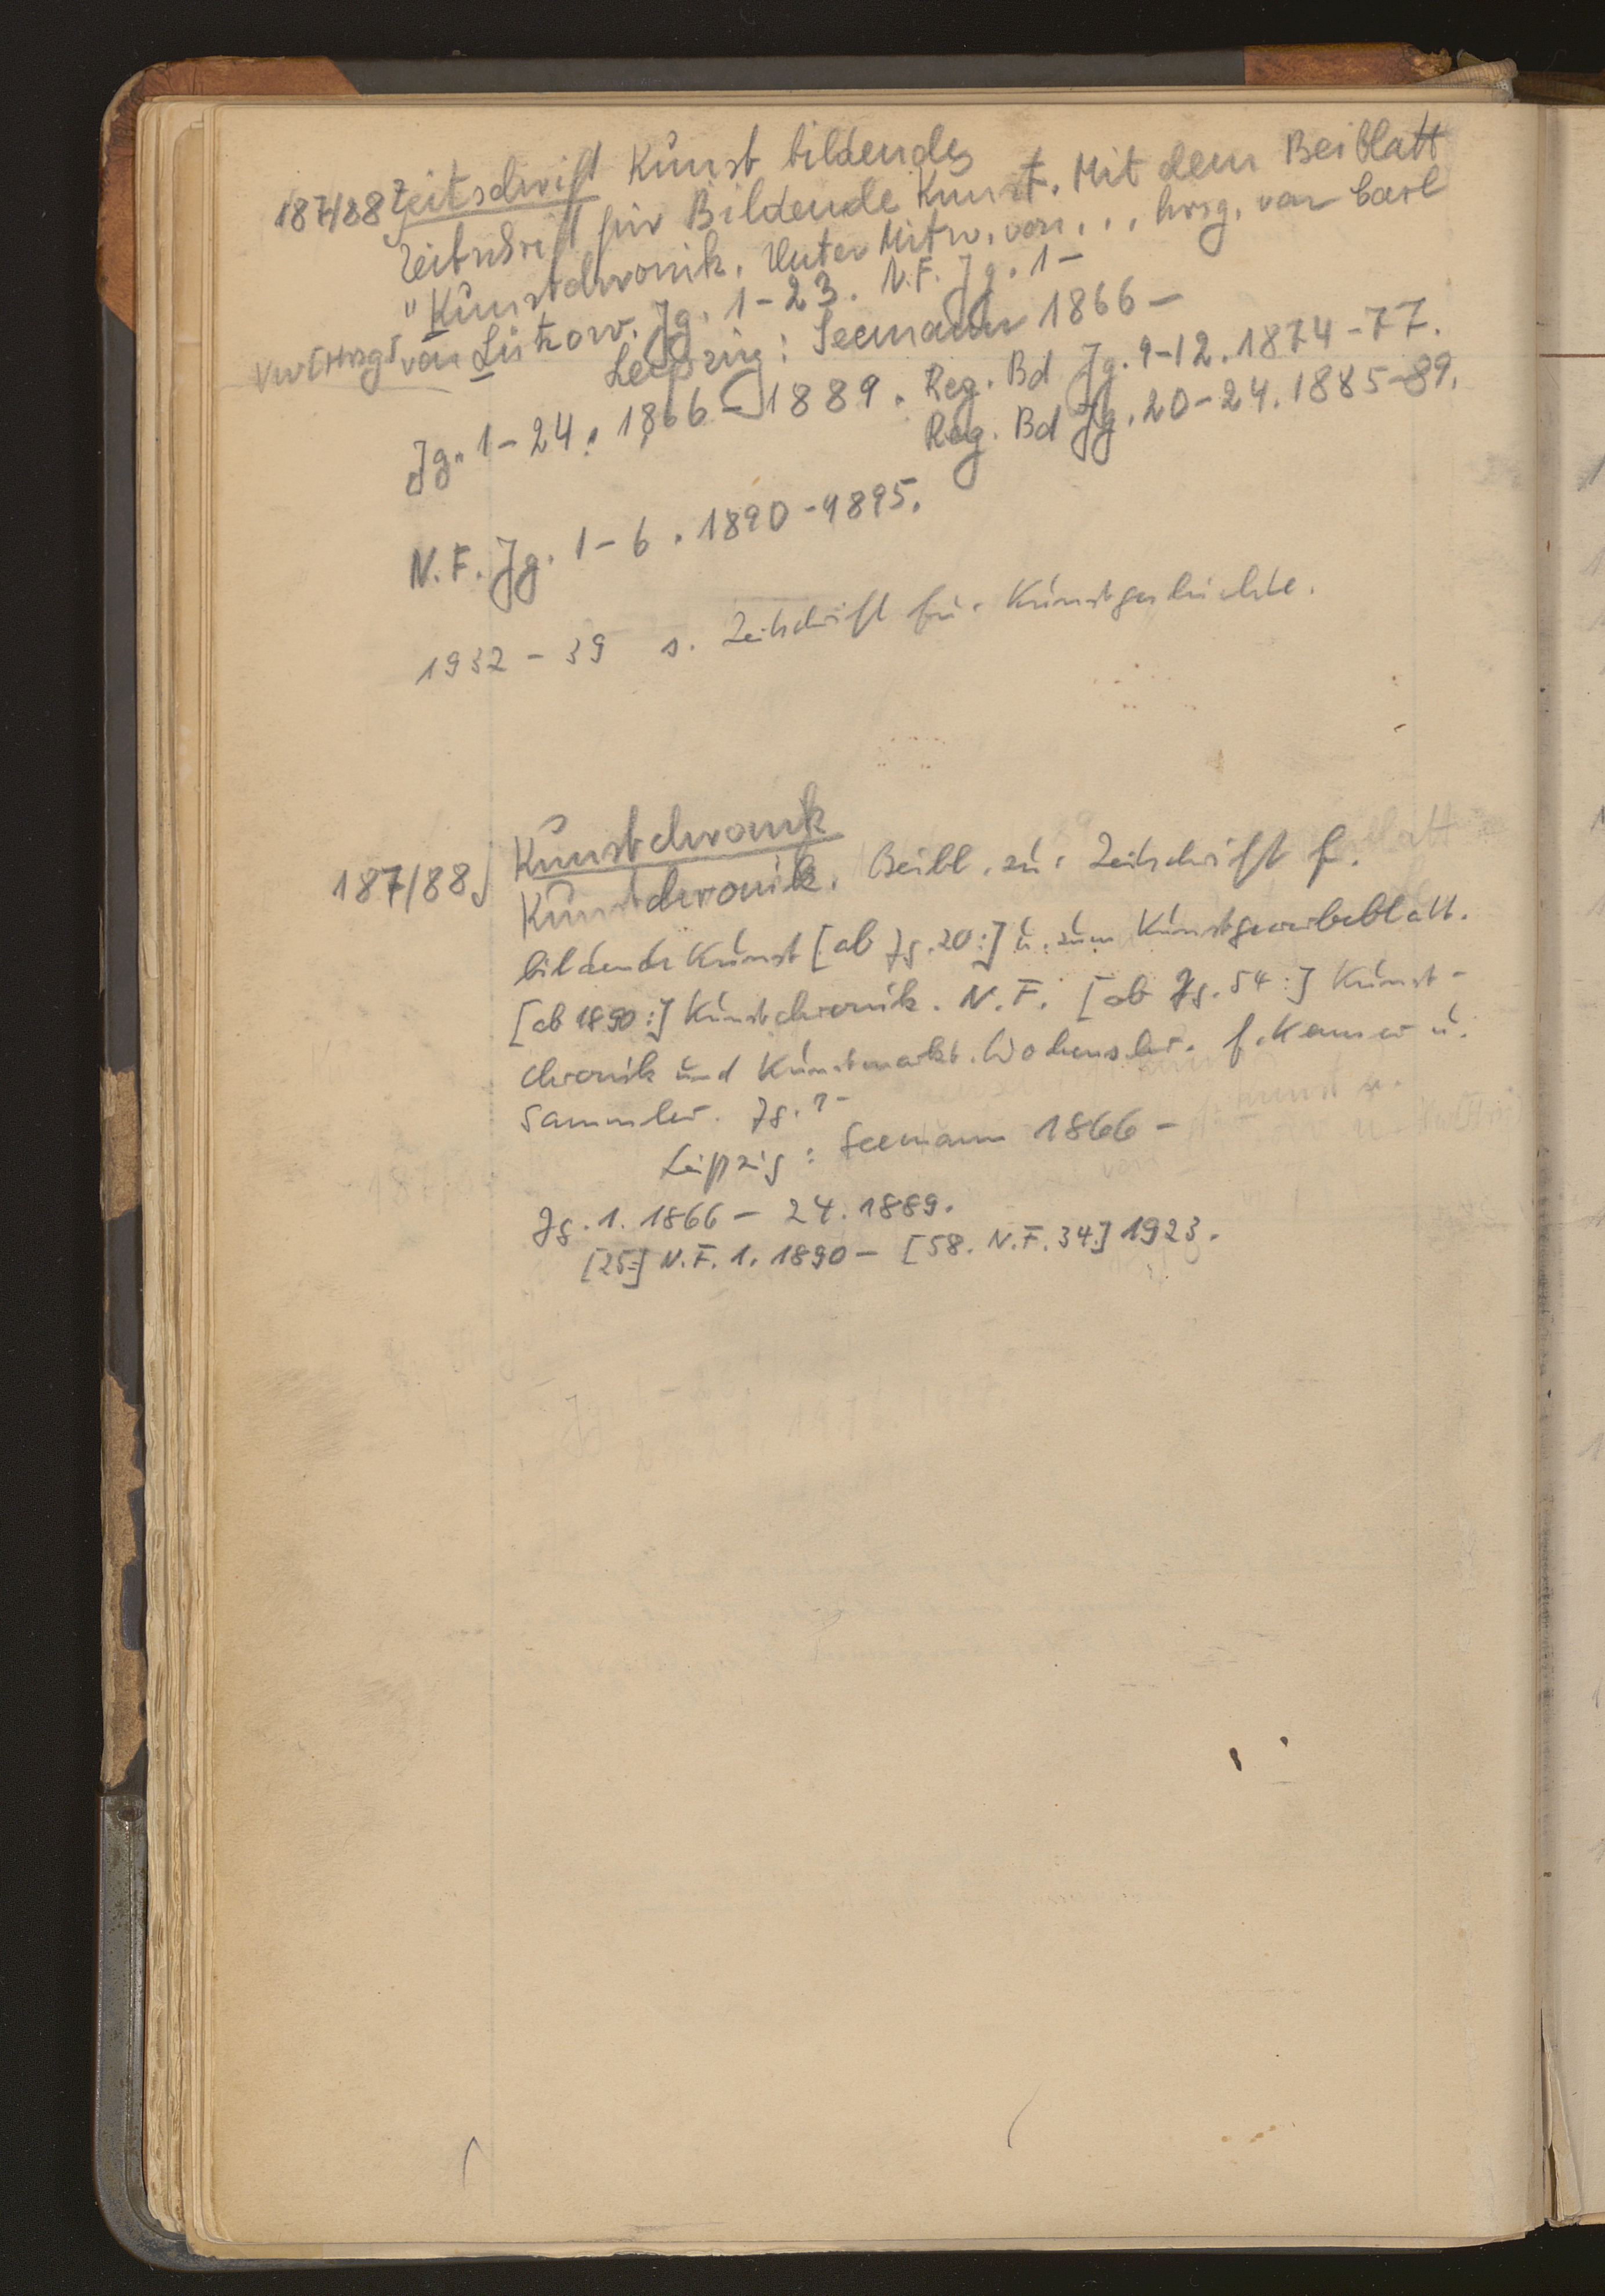 187/88 Zeitschrift Kunst bildende
Zeitschrift für Bildende Kunst. Mit dem Beiblatt
"Kunstchronik. Unter Mitw. von . . , hrsg. von Carl
Vw[Hrsg] von Lützow. Jg. 1-23. N.F. Jg. 1-
Leipzig: Seemann 1866-
Jg. 1-24. 1866-1889. Reg. Bd Jg. 9-12. 1874-77.
Reg. Bd Jg. 20-24. 1885-89.
N.F. Jg. 1-6. 1890-1895.
1932-39 s. Zeitschrift für Kunstgeschichte.
Kunstchronik
187/88 Kunstchronik. Beibl. zur Zeitschrift f.
bildende Kunst [ab Jg. 20:] u. zum Kunstgewerbeblatt.
[ab 1890:] Kunstchronik. N.F. [ab Jg. 54:] Kunst-
chronik und Kunstmarkt. Wochenschr. f. Kenner u.
Sammler. Jg. 1-
Leipzig: Seemann 1866-
Jg. 1. 1866- 24. 1889.
[25=] N.F. 1. 1890- [58. N.F. 34.] 1923.